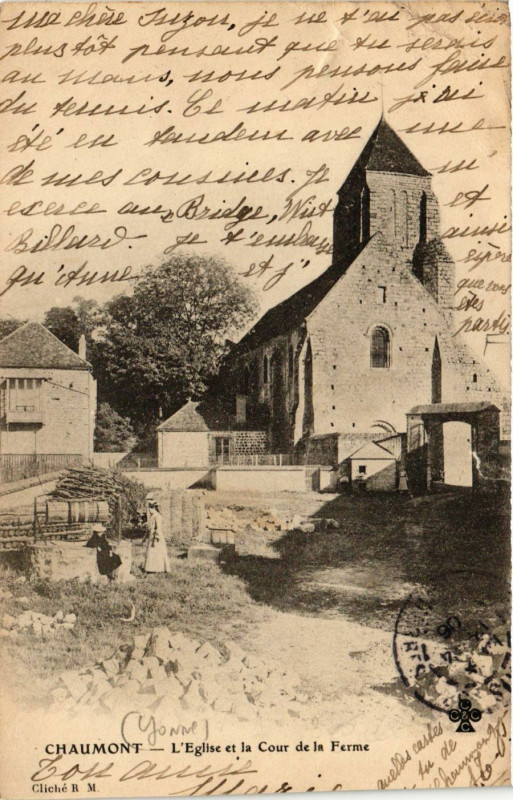 Ma chère Suzon, je ne t'ai pas écrit
plus tôt pensant que tu serais
au mans, nous pensons faire
du tennis. Ce matin j'ai
été en tandem avec une
de mes cousines. Je m'
exerce au Bridge, Wist et
Billard. Je t'embrasse ainsi
qu'Anne et j'
espère
que vous
êtes
partis
(Yonne)
CHAUMONT — L'Eglise et la Cour de la Ferme
Ton amie
Cliché R M.
quelles cartes
tu de